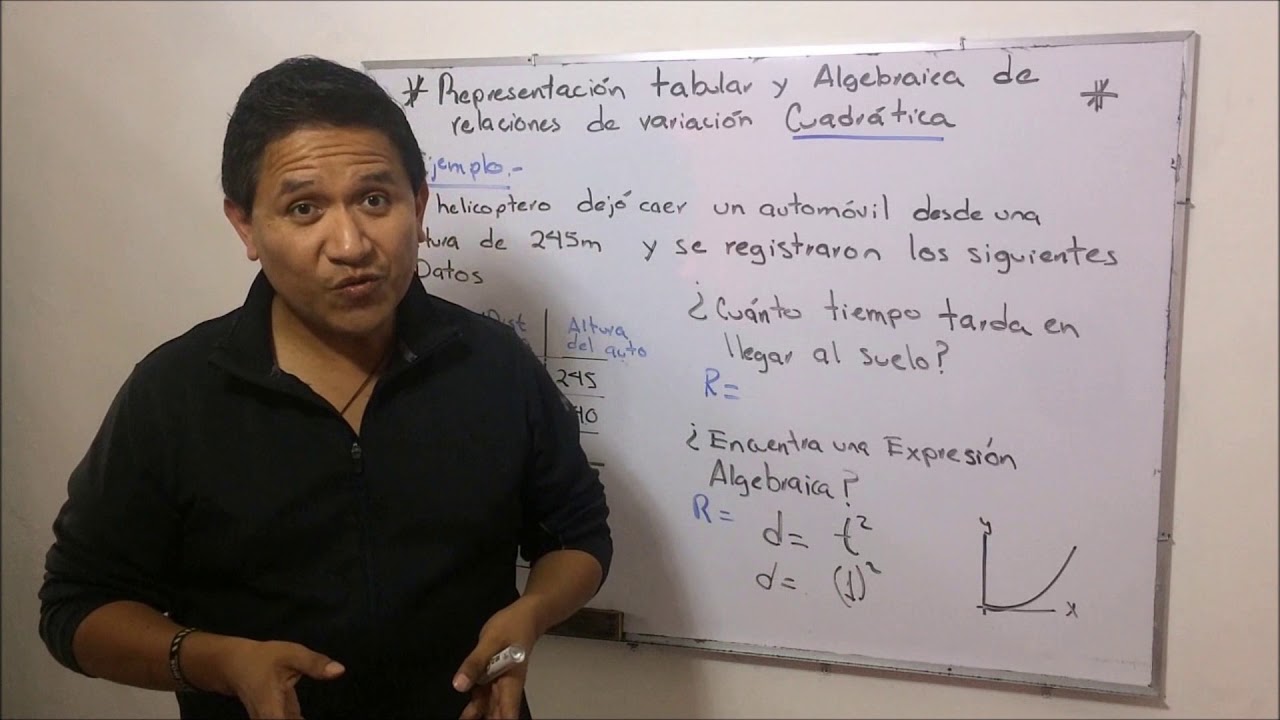 * Representación tabular y Algebraica de *
relaciones de variación Cuadrática
jemplo.-
helicoptero dejó caer un automóvil desde una
tura de 245m y se registraron los siguientes
Datos
Dist Altura
del auto
245
40
¿Cuánto tiempo tarda en
llegar al suelo?
R=
¿Encuentra una Expresión
Algebraica?
R= d= t²
d= (1)²
y
x